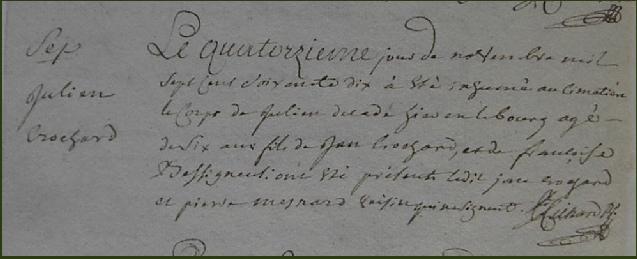 Sep
Julien
Crochard
Le quatorzieme jour de novembre mil
sept cent soixante dix à été inhumé au cimetiere
le corps de Julien decedé hier en le bourg agé
de six ans fils de Jan Crochard, et de françoise
ont été présents ledit jan Crochard
et pierre mesnard voisin qui ne signent.